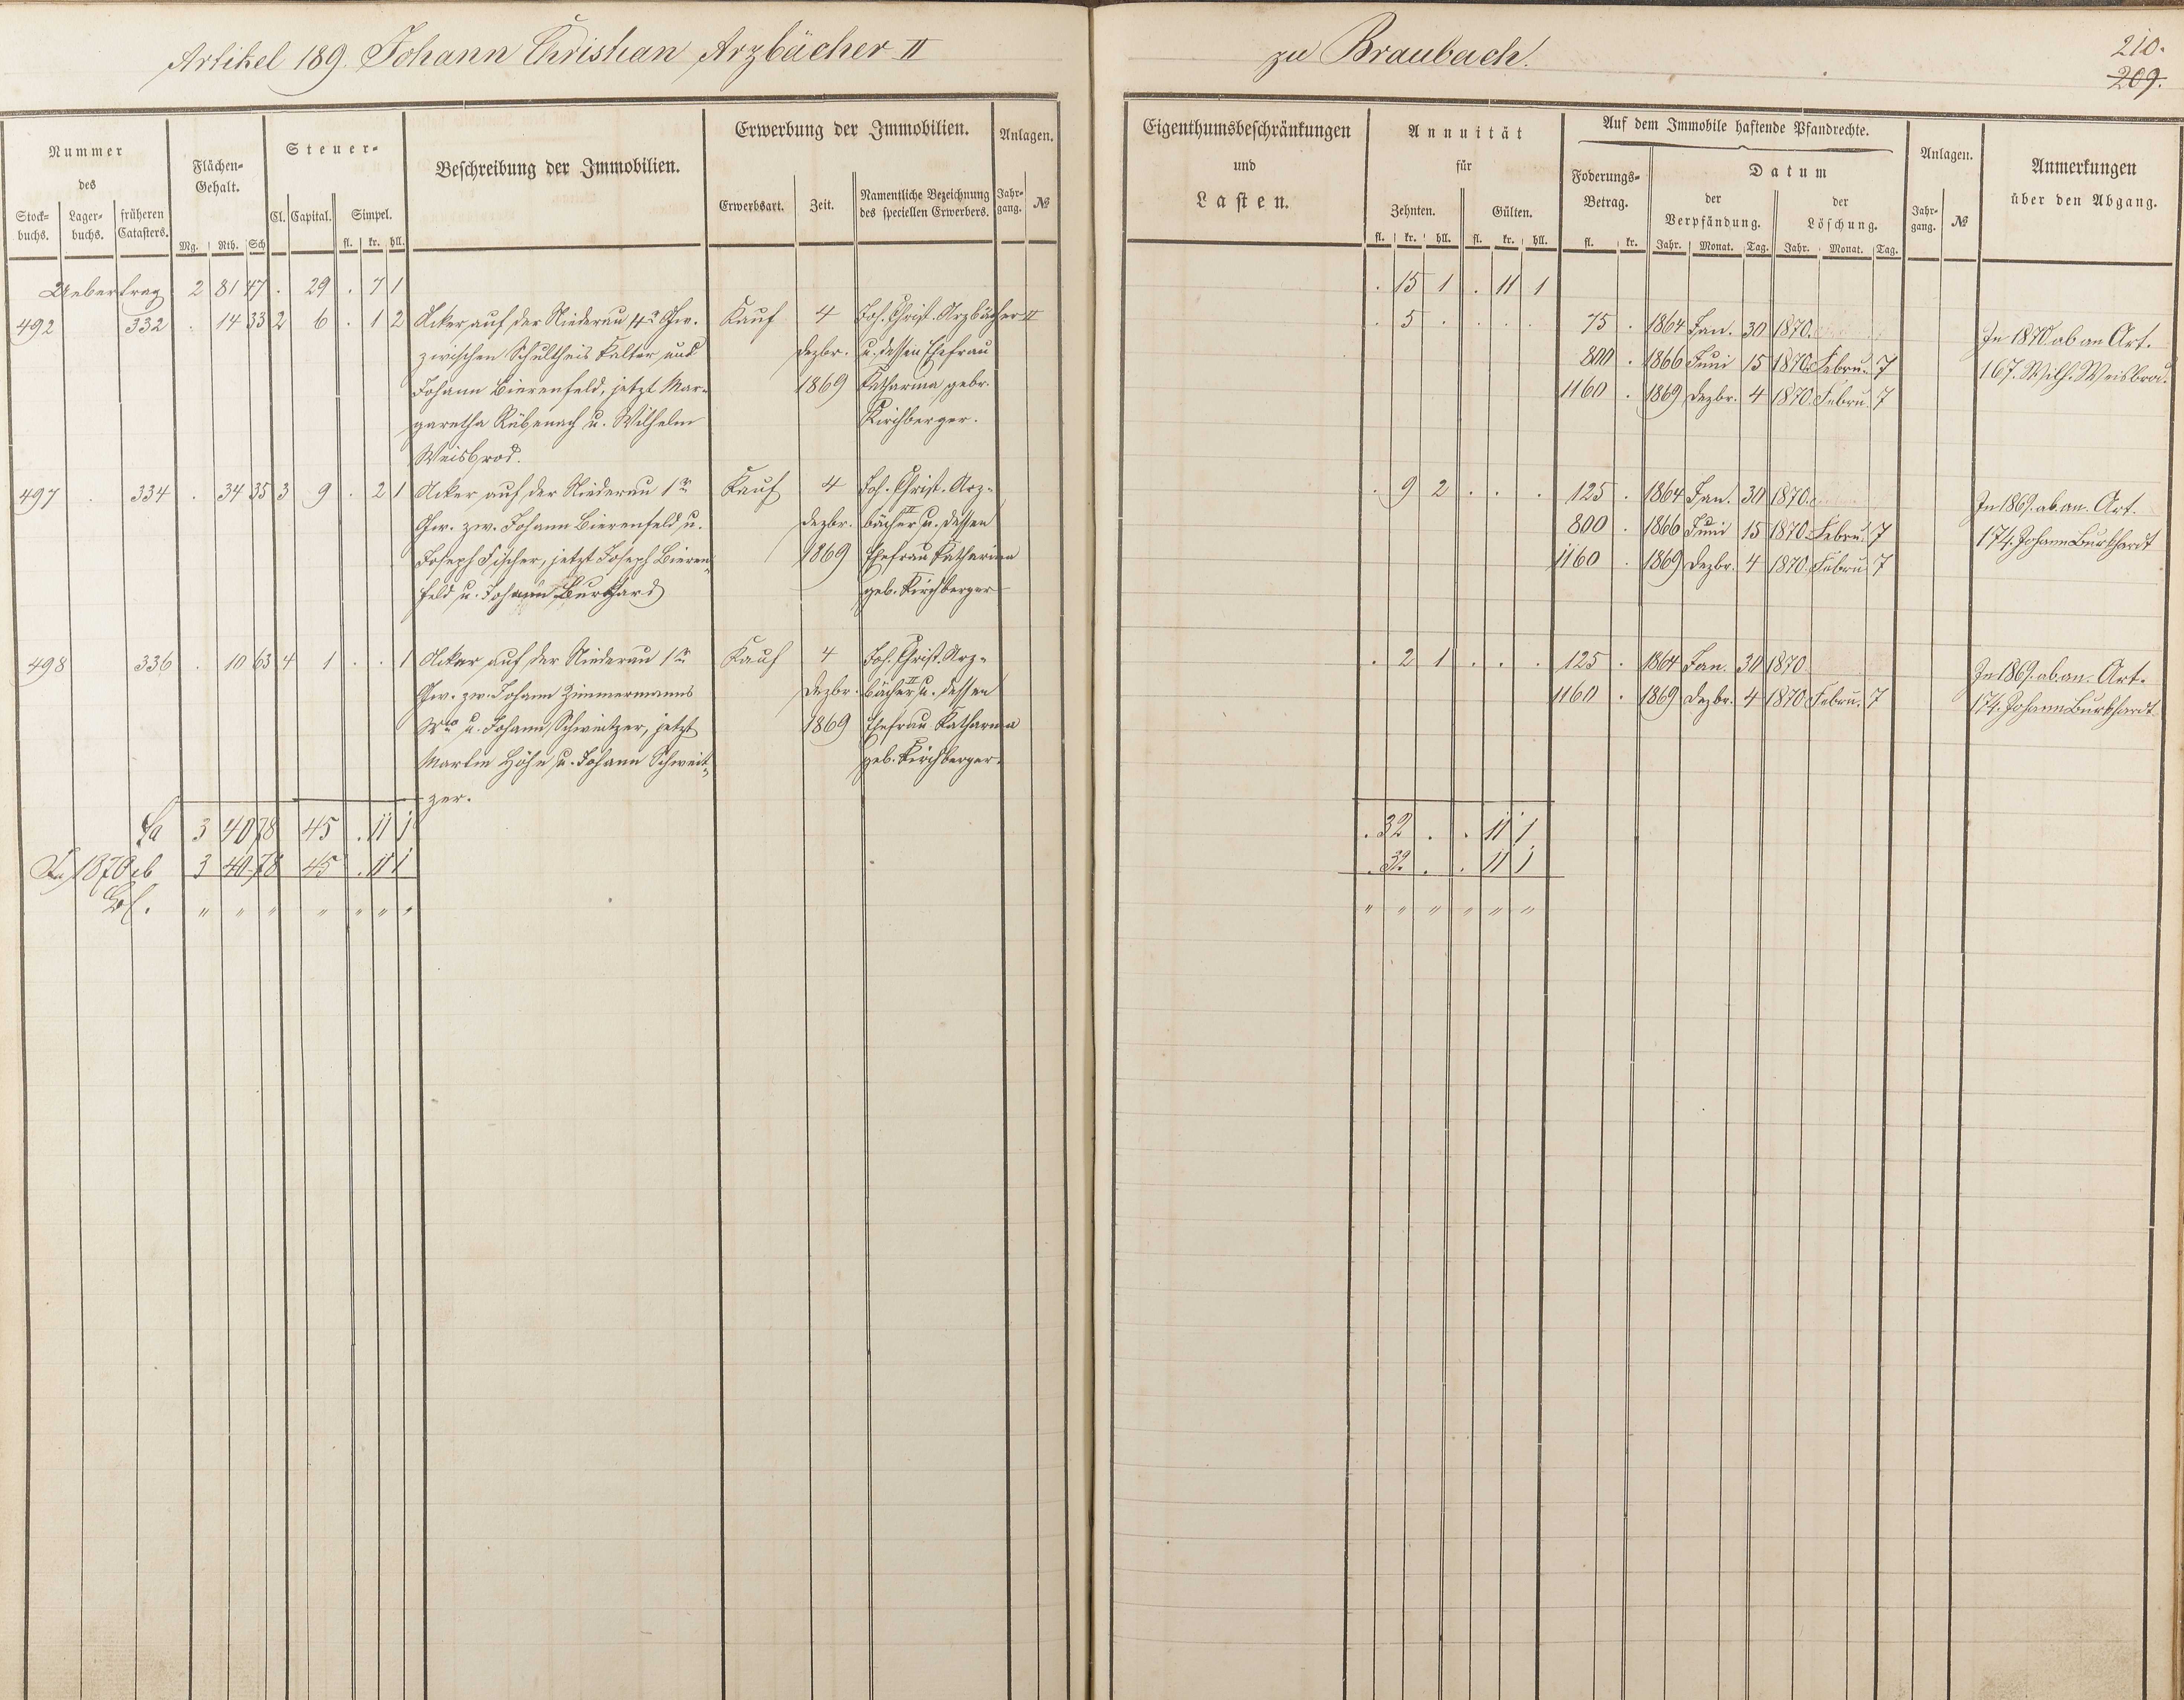 Artikel 189. Johann Christian Arzbächer II
zu Braubach.
210.
209.
Nummer
des
Stock-
buchs.
Lager-
buchs.
früheren
Catasters.
Flächen-
Gehalt.
Mg. Rth. Sch
Steuer-
Cl. Capital. Simpel.
fl. kr. hll.
Beschreibung der Immobilien.
Erwerbung der Immobilien.
Erwerbsart. Zeit.
Namentliche Bezeichnung
des speciellen Erwerbers.
Anlagen.
Jahr-
gang.
№
Eigenthumsbeschränkungen
und
Lasten.
Annuität
für
Zehnten. Gülten.
fl. kr. hll. fl. kr. hll.
Auf dem Immobile haftende Pfandrechte.
Foderungs-
Betrag.
fl. kr.
Datum
der
Verpfändung.
Jahr. Monat. Tag.
der
Löschung.
Jahr. Monat. Tag.
Anlagen.
Jahr-
gang.
№
Anmerkungen
über den Abgang.
Uebertrag 2 81 47 . 29 . 7 1 . 15 1 . 11 1
492 332 . 14 33 2 6 . 1 2 Acker auf der Niederau 4r Gew. Kauf 4 Joh. Christ. Arzbächer II . 5 . . . . 75 . 1864 Jan. 30 1870. In 1870 ab an Art.
zwischen Schultheis Salter und Dezbr. u. dessen Ehefrau 800 . 1866 Juni 15 1870. Febru. 7 167. Wilh. Weisbrod.
Johann Bierenfeld, jetzt Mar- 1869 Katharina gebr. 1160 . 1869 Dezbr. 4 1870. Febru. 7
garetha Rübenach u. Wilhelm Kirchberger.
Weisbrod.
497 . 334 . 34 35 3 9 . 2 1 Acker auf der Niederau 1r Kauf 4 Joh. Christ. Arz- . 9 2 . . . 125 . 1864 Jan. 30 1870. In 1869. ab. an. Art.
Gew. zw. Johann Bierenfeld u. Dezbr. bächer II u. dessen 800 1866 Juni 15 1870 Febru. 7 174. Johann Burkhardt
Joseph Fischer, jetzt Joseph Bieren- 1869 Ehefrau Katharina 1160 . 1869 Dezbr. 4 1870. Febru. 7
feld u. Johann Burkhard geb. Kirchberger
498 336 . 10 63 4 1 . . 1 Acker auf der Niederau 1r Kauf 4 Joh. Christ. Arz- . 2 1 . . . 125 . 1864 Jan. 30 1870 In 1869. ab an. Art.
Gew. zw. Johann Zimmermanns Dezbr. bächer II u. dessen 1160 . 1869 Dezbr. 4 1870 Febru. 7 174. Johann Burkhardt
u. Johann Schweitzer, jetzt 1869 Ehefrau Katharina
Martin Höhn u. Johann Schweit- geb. Kirchberger.
zer.
Sa 3 40 78 45 . 11 1 . 32 . . 11 1
In 1870 ab 3 40 78 45 . 11 1 . 32 . . 11 1
" " " " " " " " " " " " "